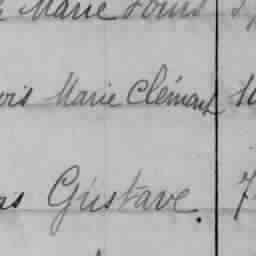 Marie Louis
ois Marie Clément
as Gustave. 7